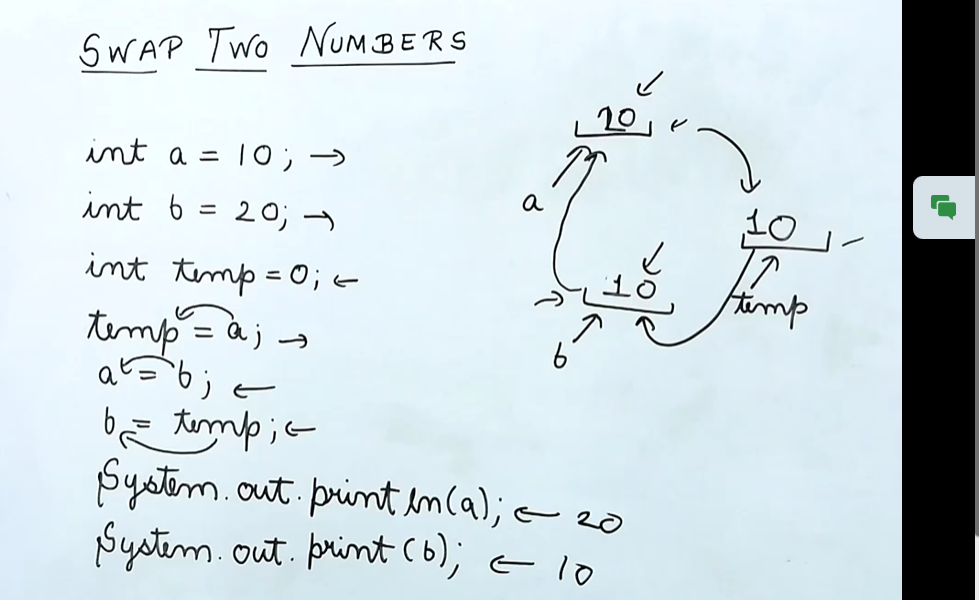 SWAP TWO NUMBERS
int a = 10; →
int b = 20; →
int temp = 0; ←
temp = a; →
a = b; ←
b = temp; ←
System.out.println(a); ← 20
System.out.print(b); ← 10
20
a
10
temp
10
b